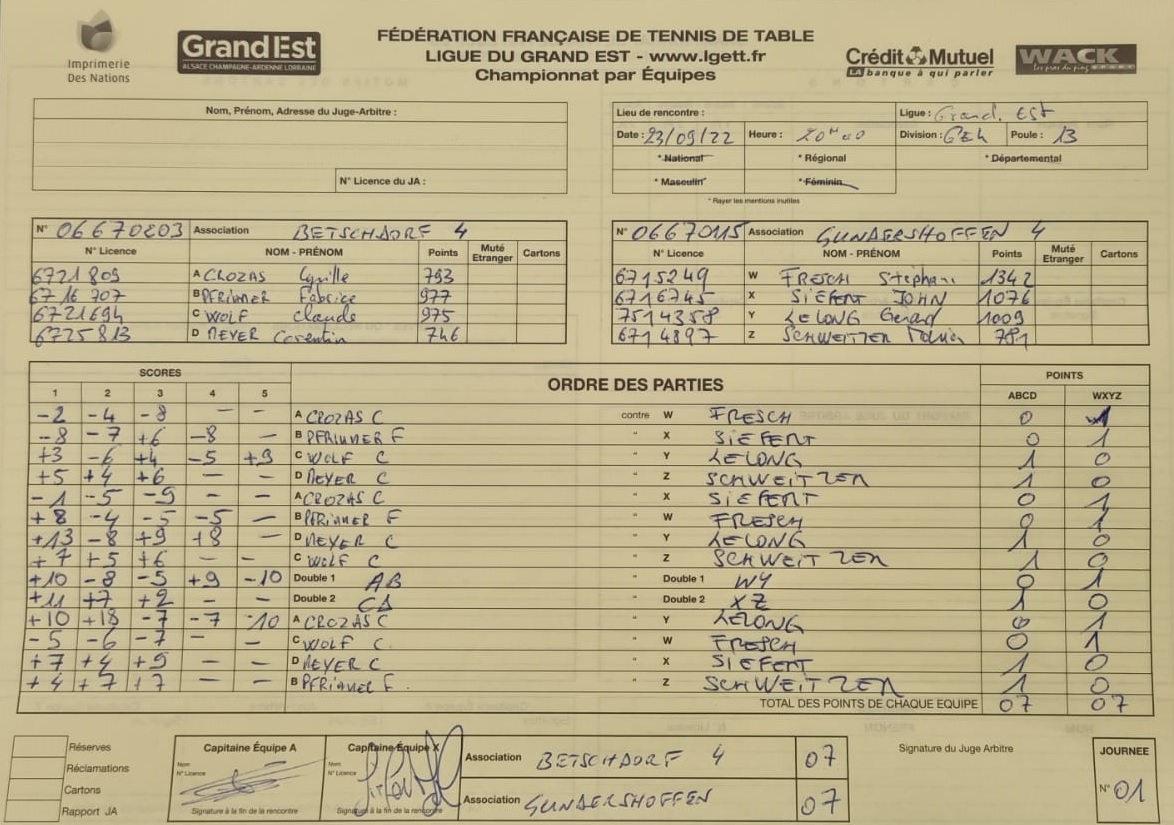 Imprimerie
Des Nations
Grand Est
ALSACE CHAMPAGNE-ARDENNE LORRAINE
FÉDÉRATION FRANÇAISE DE TENNIS DE TABLE
LIGUE DU GRAND EST - www.lgett.fr
Championnat par Équipes
Crédit Mutuel
LA banque à qui parler
WACK
les pros du ping
Nom, Prénom, Adresse du Juge-Arbitre :
N° Licence du JA :
Lieu de rencontre : Ligue : Grand. Est
Date : 23/09/22 Heure : 20H00 Division : GE4 Poule : 13
* National * Régional * Départemental
* Masculin * Féminin
* Rayer les mentions inutiles
N° 06670203 Association BETSCHDORF 4
N° Licence NOM - PRÉNOM Points Muté Etranger Cartons
6721809 A CROZAS Cyrille 793
6716707 B PFRIMMER Fabrice 977
6721694 C WOLF Claude 975
6725813 D MEYER Corentin 746
N° 06670115 Association GUNDERSHOFFEN 4
N° Licence NOM - PRÉNOM Points Muté Etranger Cartons
6715249 W FRESCH Stéphane 1342
6716745 X SIEFERT JOHN 1076
7514358 Y LELONG Gerard 1009
6714897 Z SCHWEITZER 781
SCORES ORDRE DES PARTIES POINTS
1 2 3 4 5 ABCD WXYZ
-2 -4 -8 — — A CROZAS C contre W FRESCH 0 1
-8 -7 +6 -8 — B PFRIMMER F " X SIEFERT 0 1
+3 -6 +4 -5 +9 C WOLF C " Y LELONG 1 0
+5 +4 +6 — — D MEYER C " Z SCHWEITZER 1 0
-1 -5 -9 — — A CROZAS C " X SIEFERT 0 1
+8 -4 -5 -5 — B PFRIMMER F " W FRESCH 0 1
+13 -8 +9 +8 — D MEYER C " Y LELONG 1 0
+7 +5 +6 — — C WOLF C " Z SCHWEITZER 1 0
+10 -8 -5 +9 -10 Double 1 AB " Double 1 WY 0 1
+11 +7 +2 — — Double 2 CD " Double 2 XZ 1 0
+10 +18 -7 -7 -10 A CROZAS C " Y LELONG 0 1
-5 -6 -7 — — C WOLF C. " W FRESCH 0 1
+7 +4 +9 — — D MEYER C " X SIEFERT 1 0
+4 +7 +7 — — B PFRIMMER F. " Z SCHWEITZER 1 0
TOTAL DES POINTS DE CHAQUE EQUIPE 07 07
Réserves
Réclamations
Cartons
Rapport JA
Capitaine Équipe A
Nom
N° Licence
Signature à la fin de la rencontre
Capitaine Équipe X
Nom
N° Licence
Signature à la fin de la rencontre
Association BETSCHDORF 4 07
Association GUNDERSHOFFEN 07
Signature du Juge Arbitre
JOURNEE
N° 01